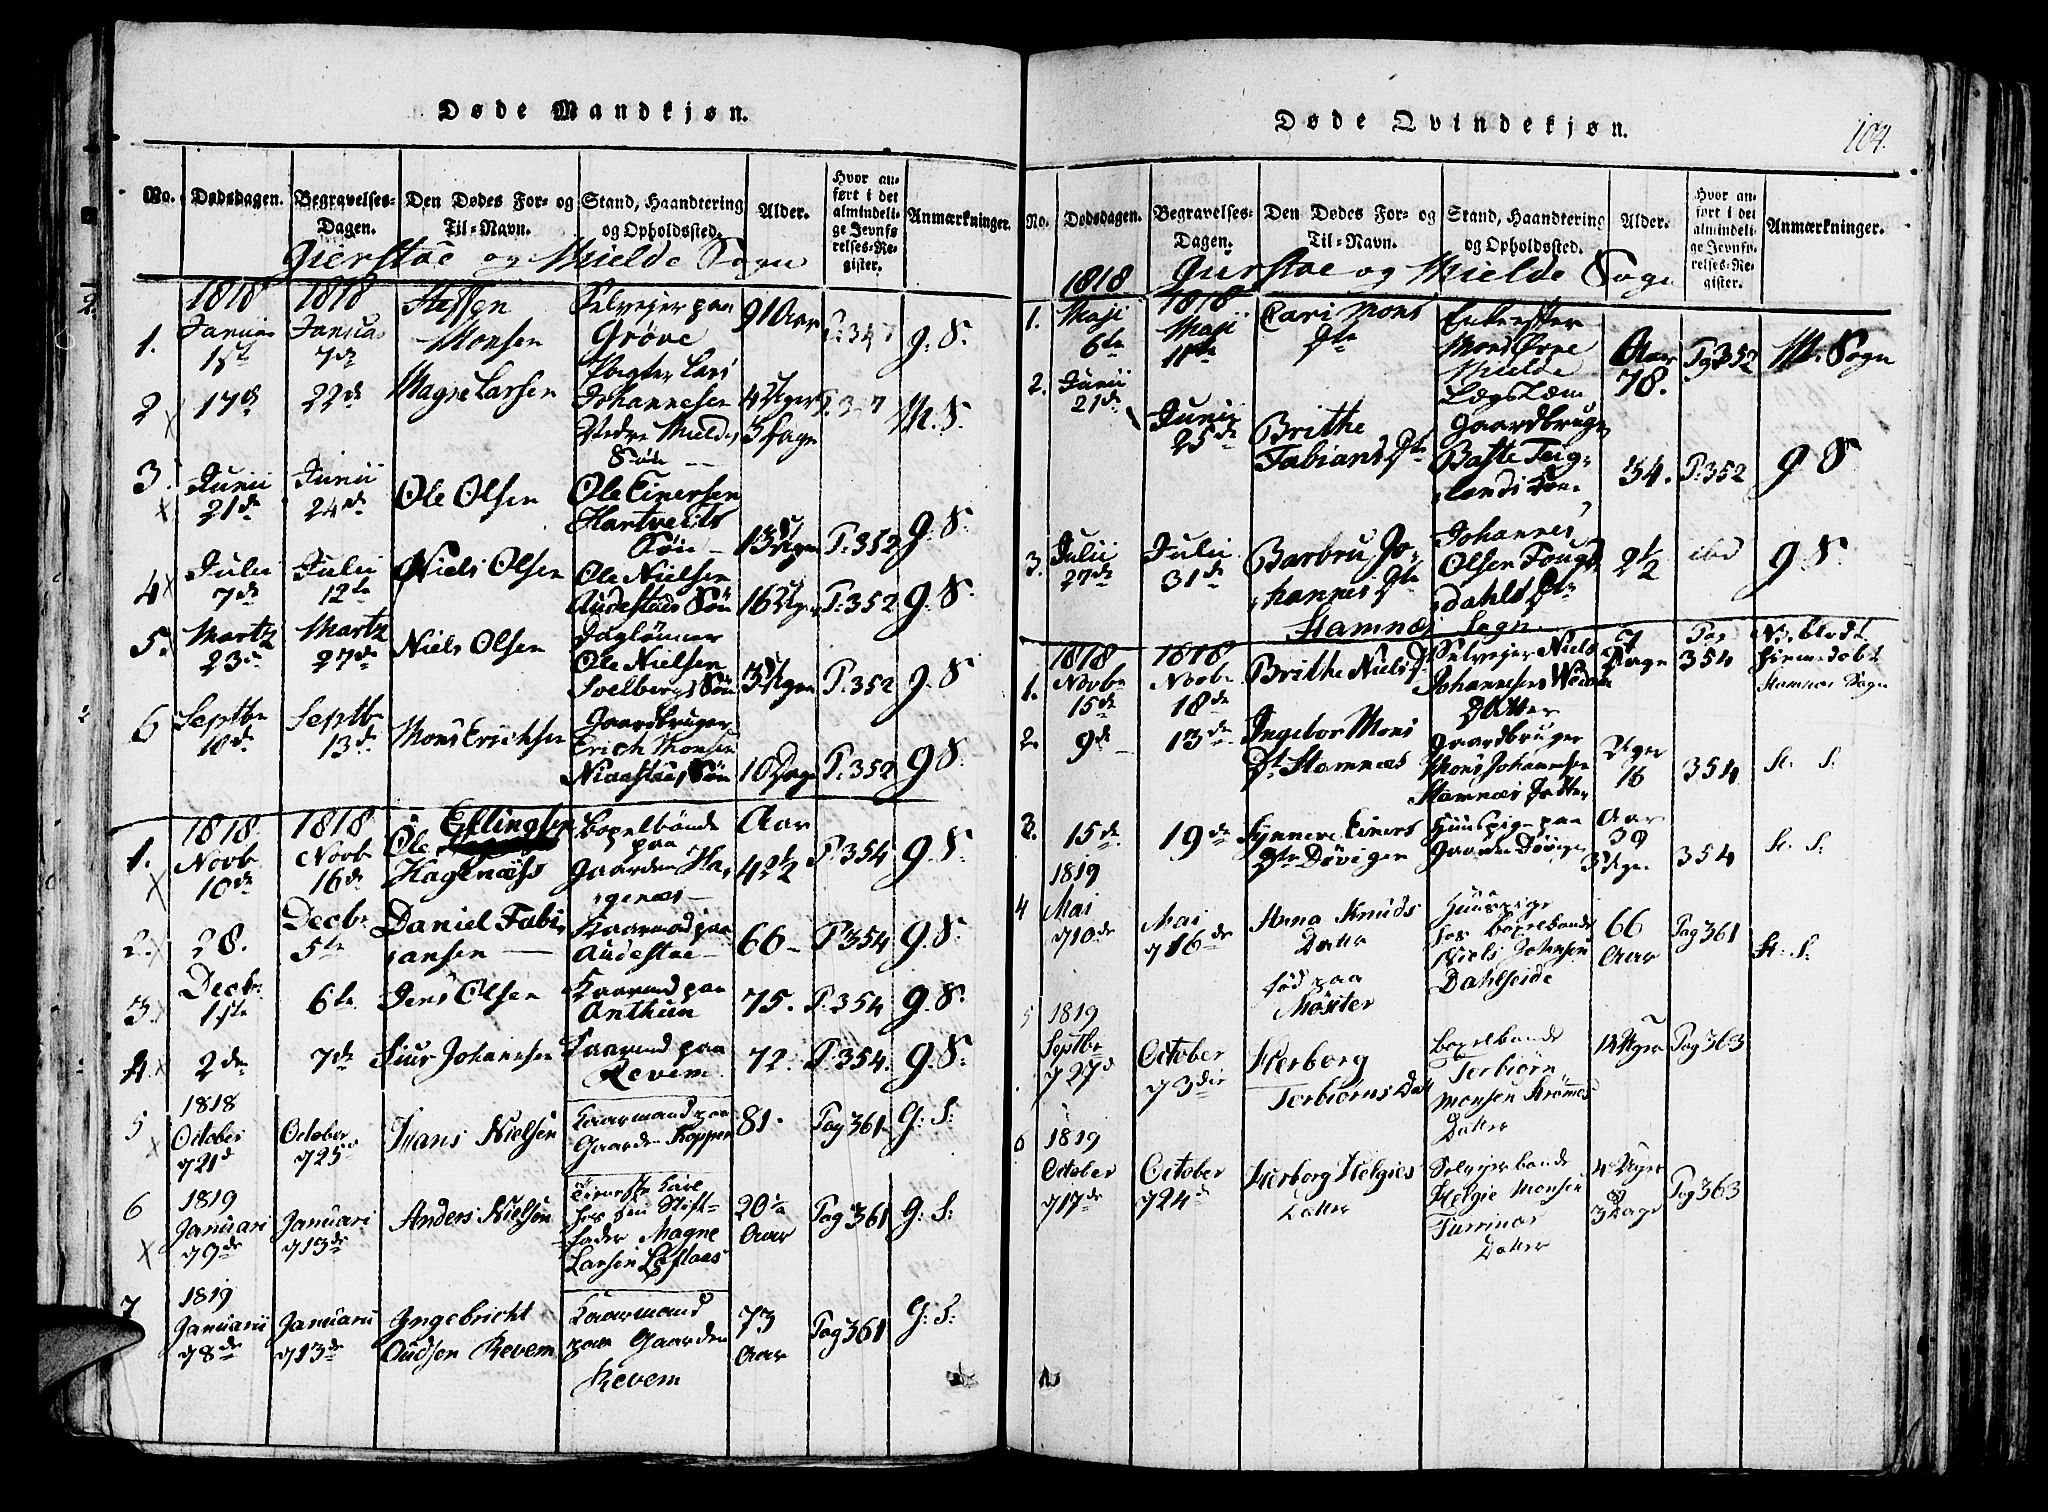 Døde Mandkjøn.
No. Dødsdagen. Begravelses-Dagen. Den Dødes For- og Til-Navn. Stand, Haandtering og Opholdssted. Alder. Hvor anført i det almindelige Jevnførelses-Register. Anmærkninger.
Gierstøe og Mielde Sogn
1. 1818 Januar 1ste 1818 Januar 7de Steffen Monsen Selvejer paa Grøve 91 Aar P. 347 G. S.
2 17de 22de Magne Larsen Pagter Lars Johannesen Nedre Mielde Søn 4 Uger 3 Dage P. 347 M. S.
3. Junii 21de Junii 24de Ole Olsen Ole Einersen Hartveits Søn 13 Uger P. 352 G. S.
4 Julii 7de Julii 12te Niels Olsen Ole Nielsen Audestads Søn 16 Uger P. 352 G. S.
5. Martz 23de Martz 27de Niels Olsen Daglønner Ole Nielsen Søn 3 Uger P. 352 G. S.
6 Septbr 10de Septbr 13de Mons Erichsen Gaardbruger Erich Monsen Søn 10 Dage P. 352 G. S.
1. 1818 Novb 10de 1818 Novb 16de Ole Ellingsen Hagenæss Bopelbonde paa Gaarden Hagenæs Aar 42½ P. 354 G. S.
2. 28. Decbr 5te Daniel Fabiansen Kaarmad paa Audestae 66 P. 354 G. S.
3. Decbr 1ste 6te Jens Olsen Kaarmd paa Anthun 75. P. 354 G. S.
4. 2de 7de Siur Johannesen Kaarmd paa Revem 72. P. 354. G. S.
5 1818 October 21d October 25de Hans Nielsen Kaarmand paa Gaarden Koppen 81. Pag 361 G: S:
6 1819 Januari 9de Januari 13de Anders Nielsen Tieneste Karl hos sin Stiffader Magne Larsen 20 Aar Pag 361 G: S:
7 1819 Januarii 8de Januarii 13de Ingebricht Oudsen Revem Kaarmand paa Gaarden Revem 73 Aar Pag 361 G: S:
Døde Qvindekjøn.
104.
No. Dødsdagen. Begravelses-Dagen. Den Dødes For- og Til-Navn. Stand, Haandtering og Opholdssted. Alder. Hvor anført i det almindelige Jevnførelses-Register. Anmærkninger.
Gierstøe og Mielde Sogn
1. 1818 Maji 6te 1818 Maji 11te Cari Mons Dtr Enke efter Mons Øvre Mielde Lægslem Aar 78. Pag 352 M. Sogn
2. Junii 21de Junii 25de Brithe Fabians Dtr Gaardbruger Teiglands Kone 34. P. 352 G S
3. Julii 27de Julii 31de Barbru Johannes Dtr Johannes Olsen Fougdahls Dtr 2½ ibd G. S.
Stamnæs Sogn
1. 1818 Novbr 15de 1818 Novbr 18de Brithe Niels D Selvejer Niels Johannesens Datter 7 Dage Pag 354 Stamnæs Sogn
2. 9de 13de Ingebor Mons Dt Stamnæs Gaardbruger Mons Johannesen Stamnæs Datter Uger 16 354 St. S.
3. 15de 19de Synneve Einers Dtr Døvigen Huuspige paa Gaarden Døvigen Aar 39 3 Uger 354 St. S.
4 1819 Mai 10de Mai 16de Anna Knuds Datter fød paa Møster Huuspige hos Bopelbonde Niels Johansen Dahlseide 66 Aar Pag 361 St. S.
5 1819 Septbr 27d October 3die Herborg Torbiørns Datt Bopelbonde Torbiørn Monsen Strømes Datter 14 Uger Pag 363
6 1819 October 17de October 24de Herborg Helgies Datter Selvejerbonde Helgie Monsen Datter 4 Uger 3 Dage Pag 363